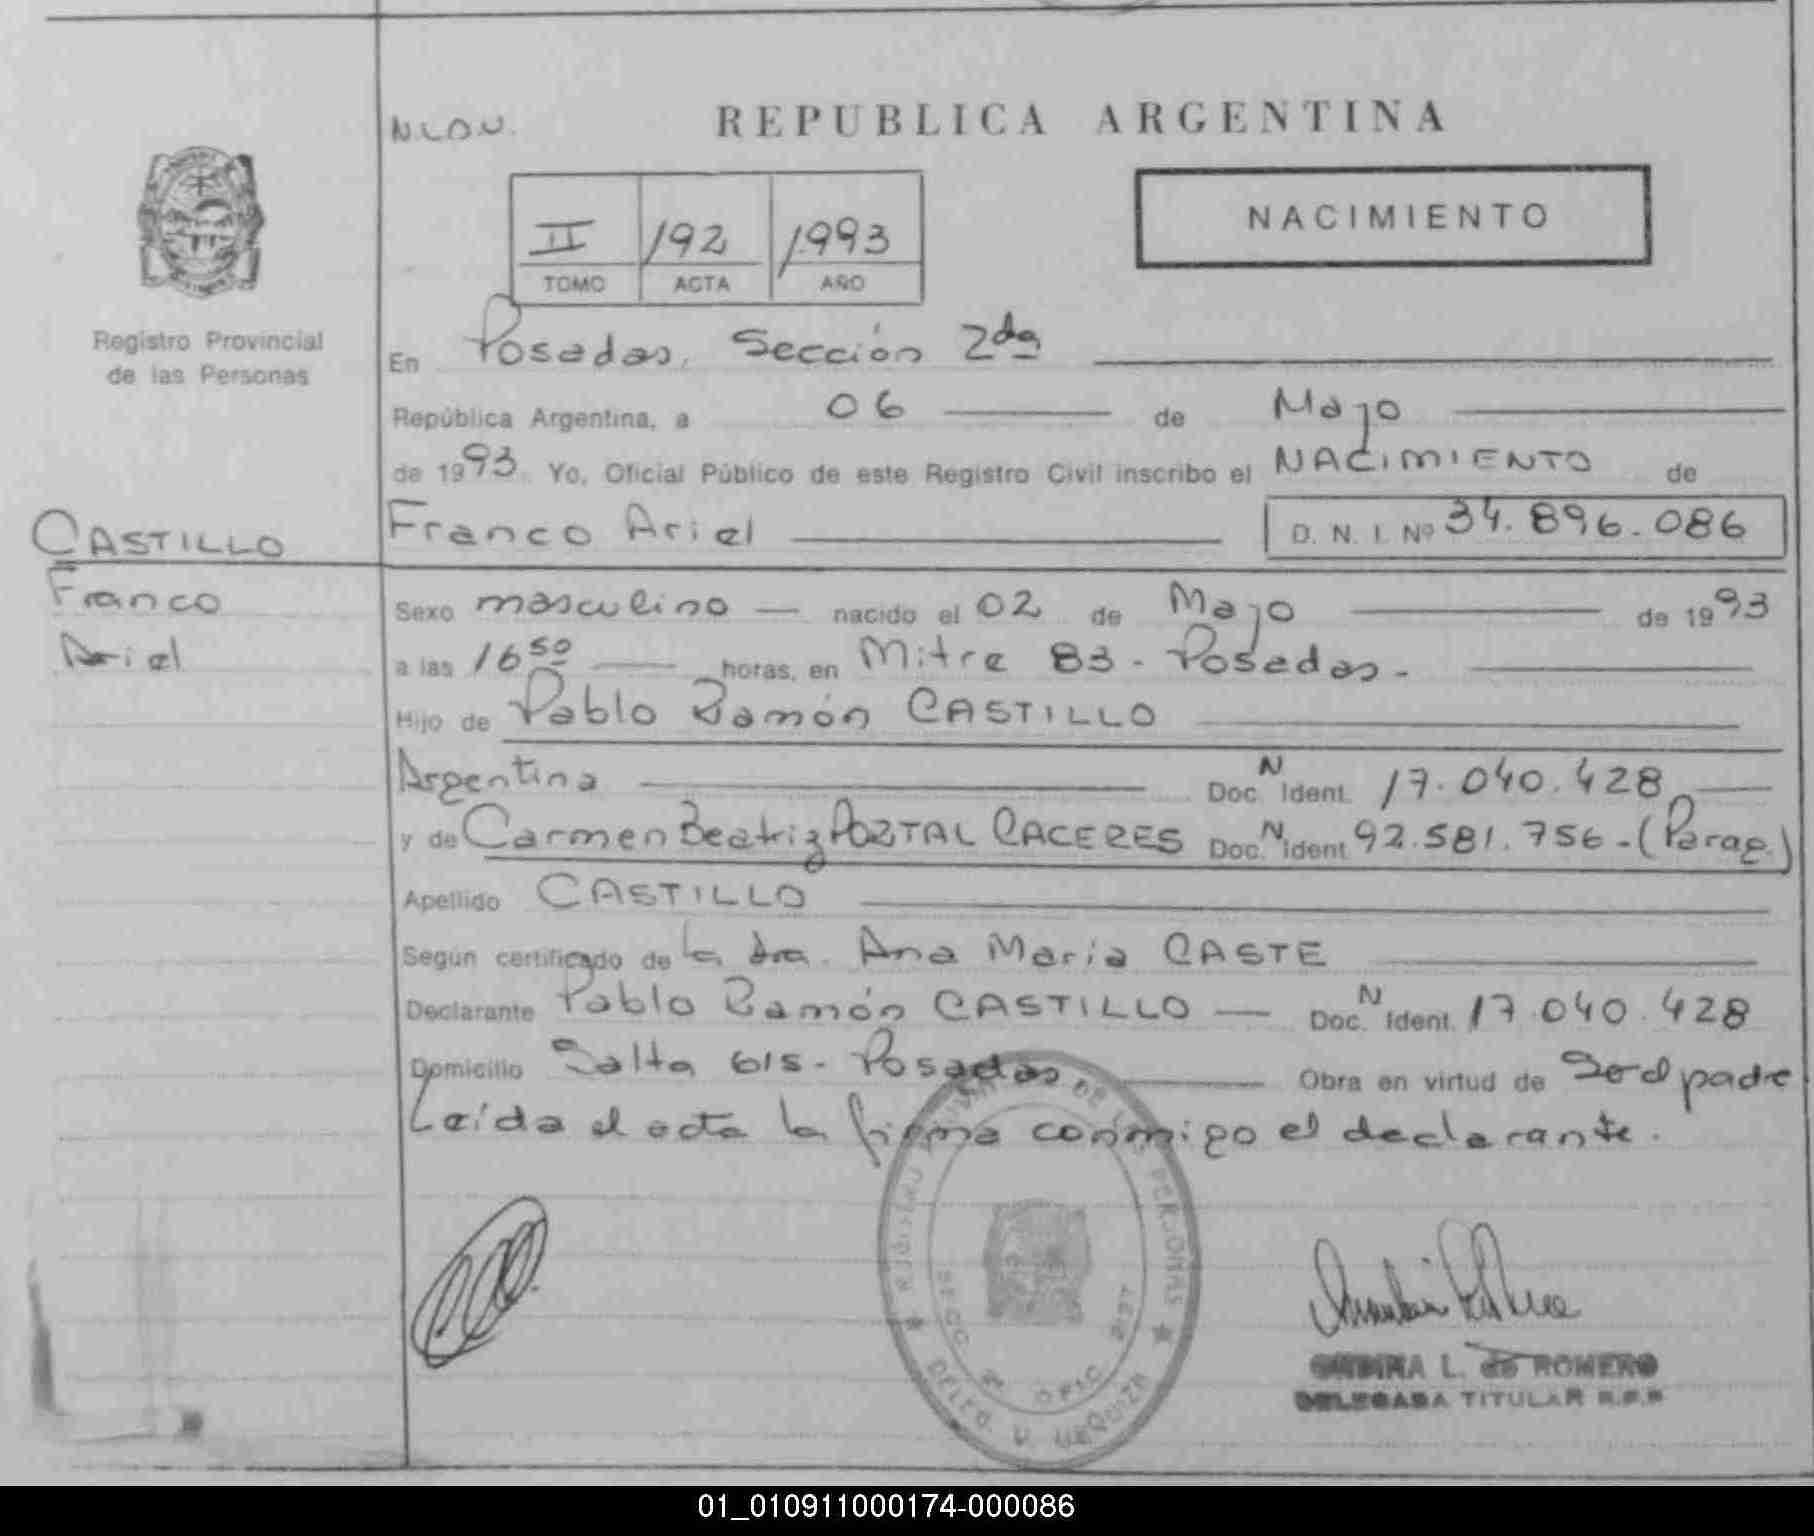 N.L.O.U.
REPUBLICA ARGENTINA
NACIMIENTO
II 192 1993
TOMO ACTA AÑO
Registro Provincial
de las Personas
En Posadas, Sección 2da
República Argentina, a 06 de Mayo
de 1993. Yo, Oficial Público de este Registro Civil inscribo el NACIMIENTO de
CASTILLO
Franco
Ariel
Franco Ariel D. N. I. Nº 34.896.086
Sexo masculino nacido el 02 de Mayo de 1993
a las 16 50 horas, en Mitre 83 - Posadas.-
Hijo de Pablo Ramón CASTILLO
Argentina Doc. N Ident. 17.040.428
y de Carmen Beatriz PORTAL CACERES Doc. N Ident 92.581.756 - (Parag.)
Apellido CASTILLO
Según certificado de la dra. Ana Maria CASTE
Declarante Pablo Ramón CASTILLO Doc. N Ident. 17.040.428
Domicilio Salta 615 - Posadas Obra en virtud de Ser el padre
Leída el acta la firma conmigo el declarante.
DE LAS PERSONAS
SECC 2ª OFIC
L. de ROMERO
DELEGADA TITULAR R.P.P
01_010911000174-000086